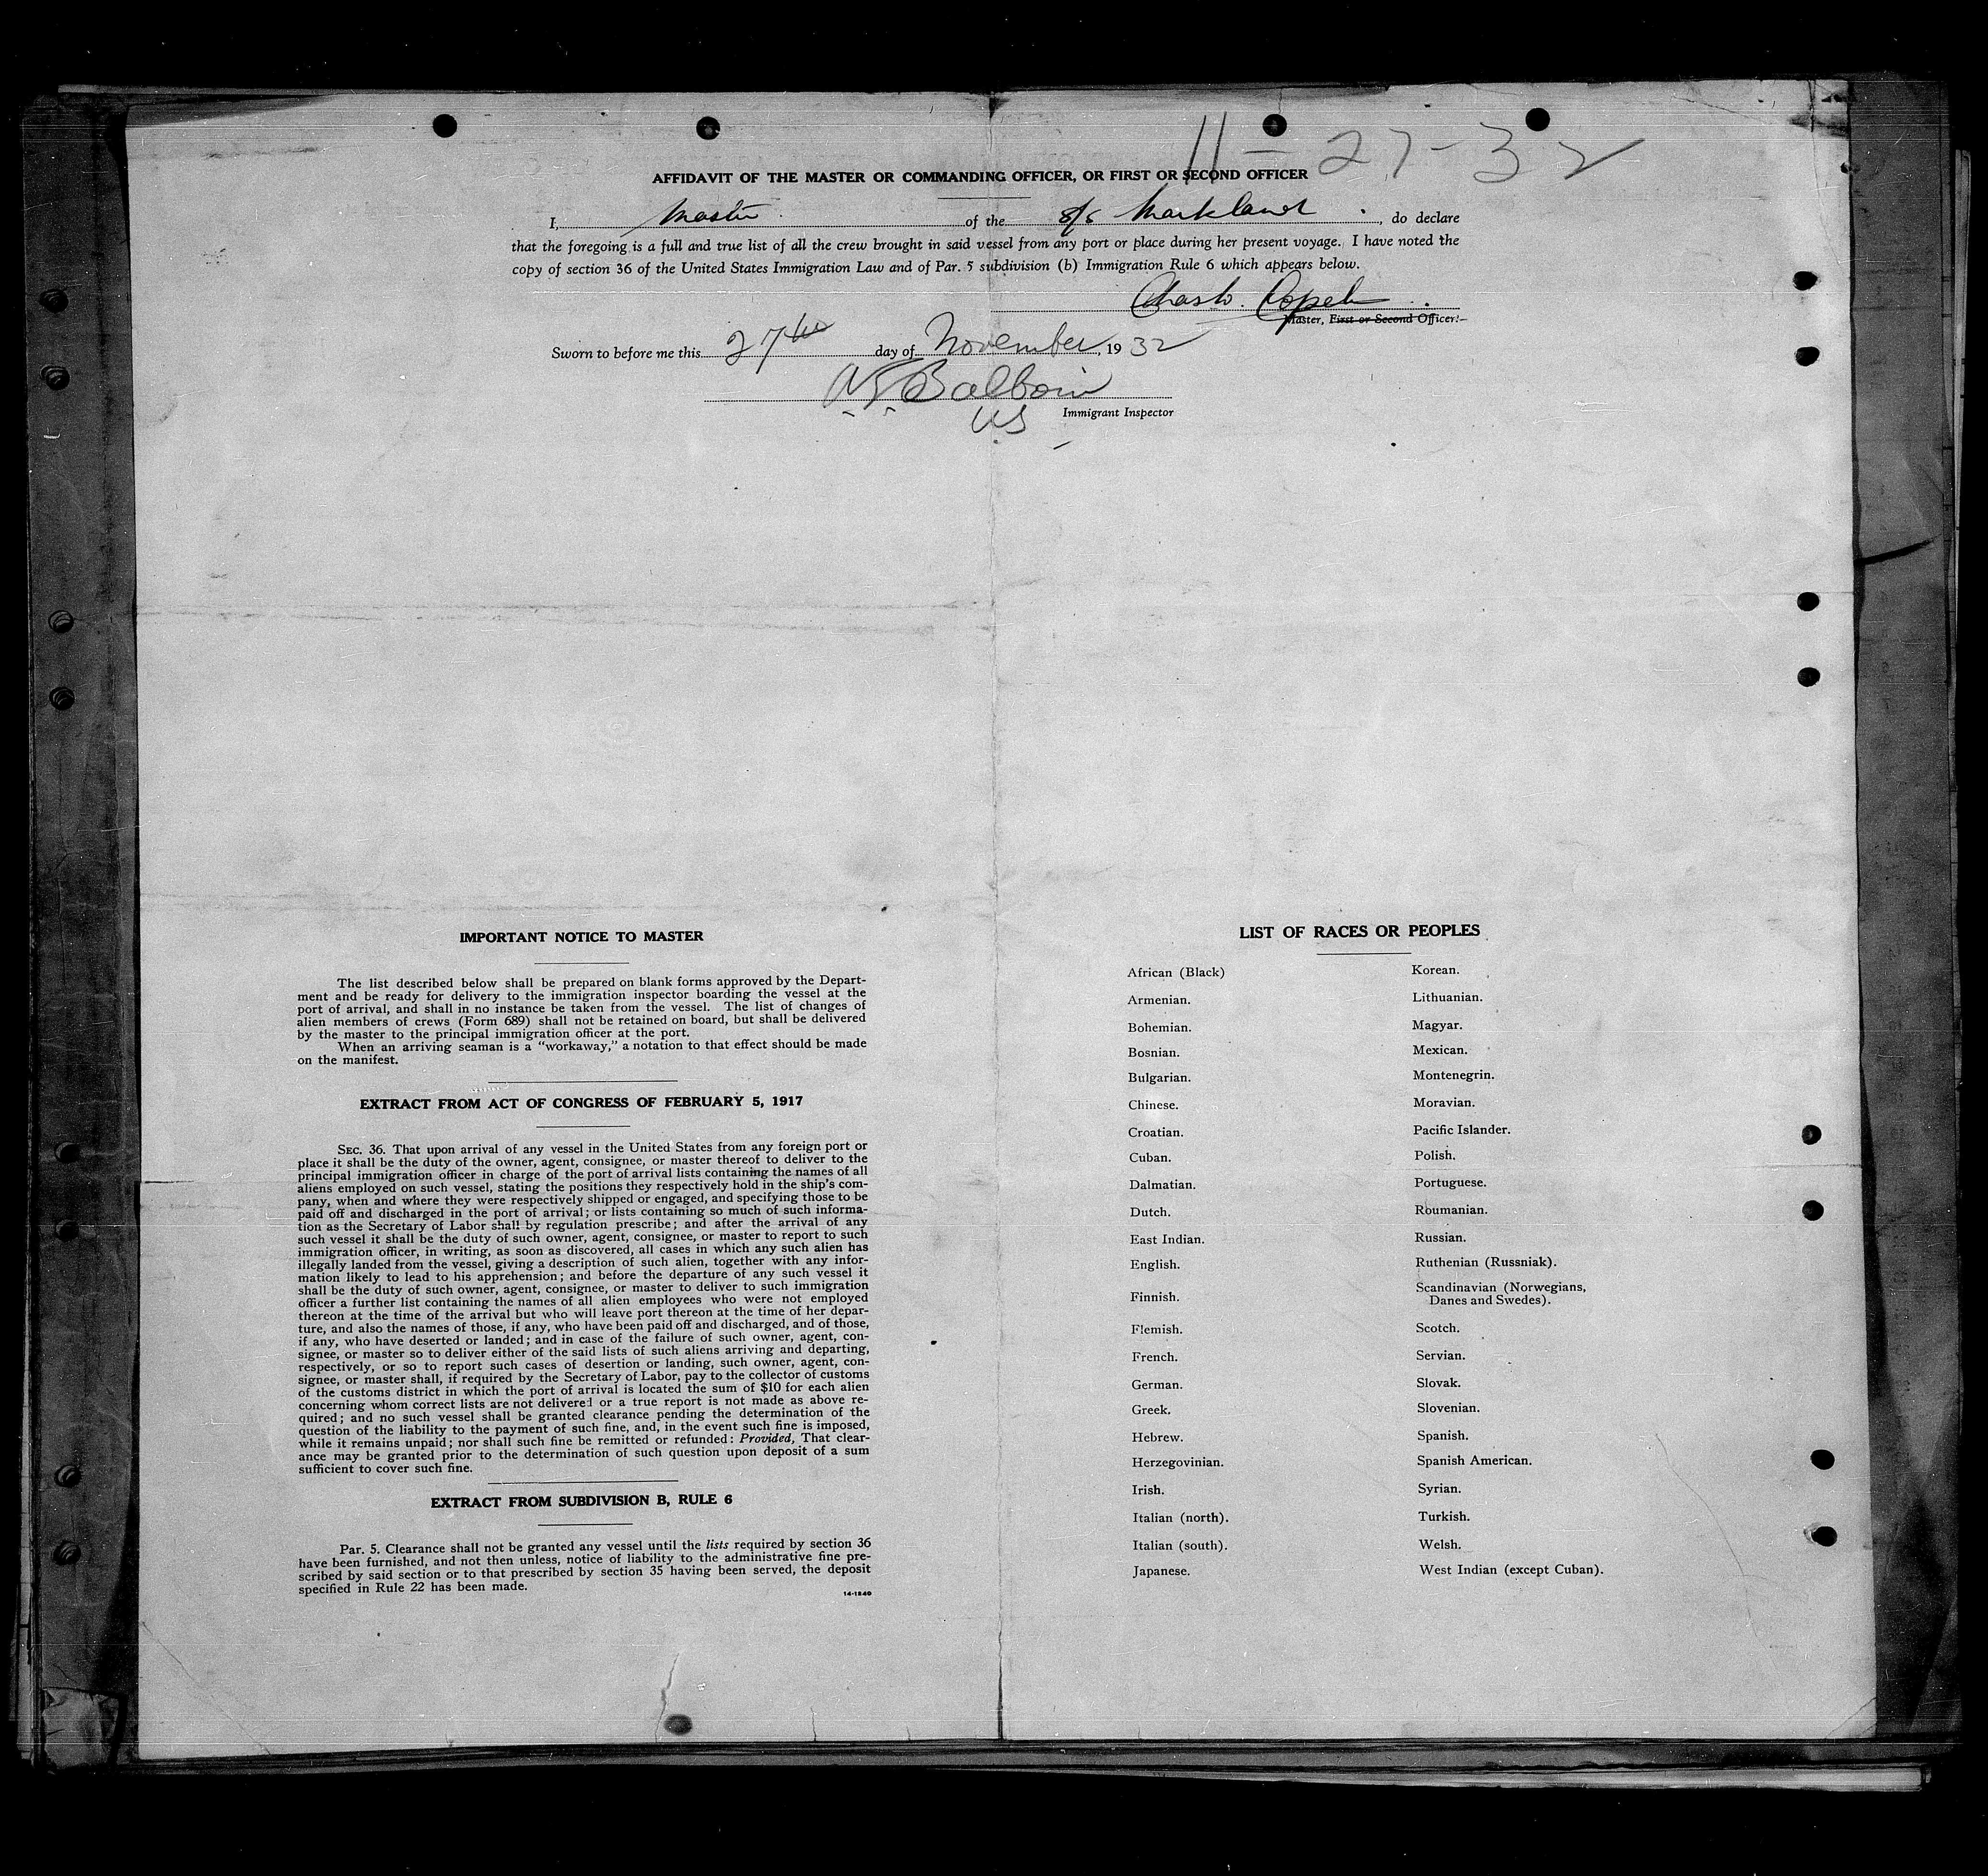 11-27-32
AFFIDAVIT OF THE MASTER OR COMMANDING OFFICER, OR FIRST OR SECOND OFFICER
I, Master of the S/S Markland, do declare
that the foregoing is a full and true list of all the crew brought in said vessel from any port or place during her present voyage. I have noted the
copy of section 36 of the United States Immigration Law and of Par. 5 subdivision (b) Immigration Rule 6 which appears below.
Master, First or Second Officer.
Sworn to before me this 27th day of November, 1932
US
Immigrant Inspector
IMPORTANT NOTICE TO MASTER
The list described below shall be prepared on blank forms approved by the Depart-
ment and be ready for delivery to the immigration inspector boarding the vessel at the
port of arrival, and shall in no instance be taken from the vessel. The list of changes of
alien members of crews (Form 689) shall not be retained on board, but shall be delivered
by the master to the principal immigration officer at the port.
When an arriving seaman is a "workaway," a notation to that effect should be made
on the manifest.
EXTRACT FROM ACT OF CONGRESS OF FEBRUARY 5, 1917
SEC. 36. That upon arrival of any vessel in the United States from any foreign port or
place it shall be the duty of the owner, agent, consignee, or master thereof to deliver to the
principal immigration officer in charge of the port of arrival lists containing the names of all
aliens employed on such vessel, stating the positions they respectively hold in the ship's com-
pany, when and where they were respectively shipped or engaged, and specifying those to be
paid off and discharged in the port of arrival; or lists containing so much of such informa-
tion as the Secretary of Labor shall by regulation prescribe; and after the arrival of any
such vessel it shall be the duty of such owner, agent, consignee, or master to report to such
immigration officer, in writing, as soon as discovered, all cases in which any such alien has
illegally landed from the vessel, giving a description of such alien, together with any infor-
mation likely to lead to his apprehension; and before the departure of any such vessel it
shall be the duty of such owner, agent, consignee, or master to deliver to such immigration
officer a further list containing the names of all alien employees who were not employed
thereon at the time of the arrival but who will leave port thereon at the time of her depar-
ture, and also the names of those, if any, who have been paid off and discharged, and of those,
if any, who have deserted or landed; and in case of the failure of such owner, agent, con-
signee, or master so to deliver either of the said lists of such aliens arriving and departing,
respectively, or so to report such cases of desertion or landing, such owner, agent, con-
signee, or master shall, if required by the Secretary of Labor, pay to the collector of customs
of the customs district in which the port of arrival is located the sum of $10 for each alien
concerning whom correct lists are not delivered or a true report is not made as above re-
quired; and no such vessel shall be granted clearance pending the determination of the
question of the liability to the payment of such fine, and, in the event such fine is imposed,
while it remains unpaid; nor shall such fine be remitted or refunded: Provided, That clear-
ance may be granted prior to the determination of such question upon deposit of a sum
sufficient to cover such fine.
EXTRACT FROM SUBDIVISION B, RULE 6
Par. 5. Clearance shall not be granted any vessel until the lists required by section 36
have been furnished, and not then unless, notice of liability to the administrative fine pre-
scribed by said section or to that prescribed by section 35 having been served, the deposit
specified in Rule 22 has been made.
14-1240
LIST OF RACES OR PEOPLES
African (Black)
Armenian.
Bohemian.
Bosnian.
Bulgarian.
Chinese.
Croatian.
Cuban.
Dalmatian.
Dutch.
East Indian.
English.
Finnish.
Flemish.
French.
German.
Greek.
Hebrew.
Herzegovinian.
Irish.
Italian (north).
Italian (south).
Japanese.
Korean.
Lithuanian.
Magyar.
Mexican.
Montenegrin.
Moravian.
Pacific Islander.
Polish.
Portuguese.
Roumanian.
Russian.
Ruthenian (Russniak).
Scandinavian (Norwegians,
Danes and Swedes).
Scotch.
Servian.
Slovak.
Slovenian.
Spanish.
Spanish American.
Syrian.
Turkish.
Welsh.
West Indian (except Cuban).